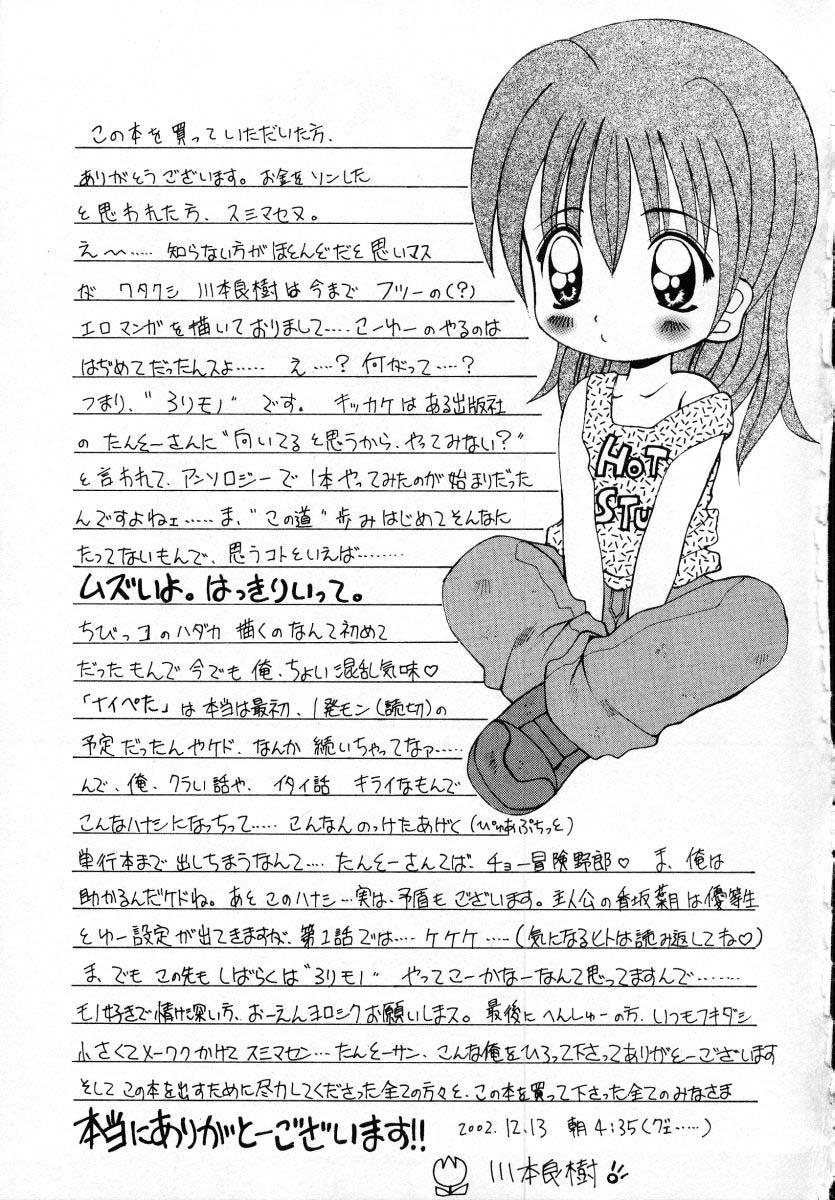 この本を買っていただいた方、
ありがとうございます。お金をソンした
と思われた方、スミマセヌ。
え〜…… 知らない方がほとんどだと思いマス
が ワタクシ 川本良樹は今まで フツーの(?)
エロマンガを描いておりまして…… こーゆーのやるのは
はぢめてだったんスよ…… え…? 何がって…?
つまり、“ろりモノ” です。 キッカケはある出版社
の たんとーさんに“向いてると思うから、やってみない?”
と言われて、アンソロジーで 1本やってみたのが始まりだった
んですよねェ…… ま、“この道”歩みはじめてそんなに
たってないもんで、思うコトといえば……
ムズいよ。はっきりいって。
ちびっコのハダカ 描くのなんて初めて
だったもんで今でも俺、ちょい混乱気味♡
「ナイペた」は本当は最初、1発モン(読切)の
予定だったんやケド、なんか 続いちゃってなァ……
んで、俺、クラい話や、イタイ話 キライなもんで
こんなハナシになっちって…… こんなんのっけたあげく(ぴゅあぷちっと)
単行本まで出しちまうなんて…. たんとーさんてば、チョー冒険野郎♡ ま、俺は
助かるんだケドね。あと このハナシ…実は、矛盾も ございます。主人公の香坂葉月は優等生
とゆー設定が出てきますが、第1話では…. ケケケ….(気になるヒトは読み返してね♡)
ま、でも この先も しばらくは“ろりモノ” やってこーかなーなんて思ってますんで……
モノ好きで情け深い方、おーえんヨロシクお願いしまス。最後に へんしゅーの方、いつもフキダシ
小さくてメーワクかけて スミマセン…たんとーサン、こんな俺をひろって下さってありがとーございます
そして この本を出すために尽力してくださった全ての方々と、この本を買って下さった全てのみなさま
本当にありがとーございます!!
2002.12.13 朝4:35(グェ……)
川本良樹
HOT
STU